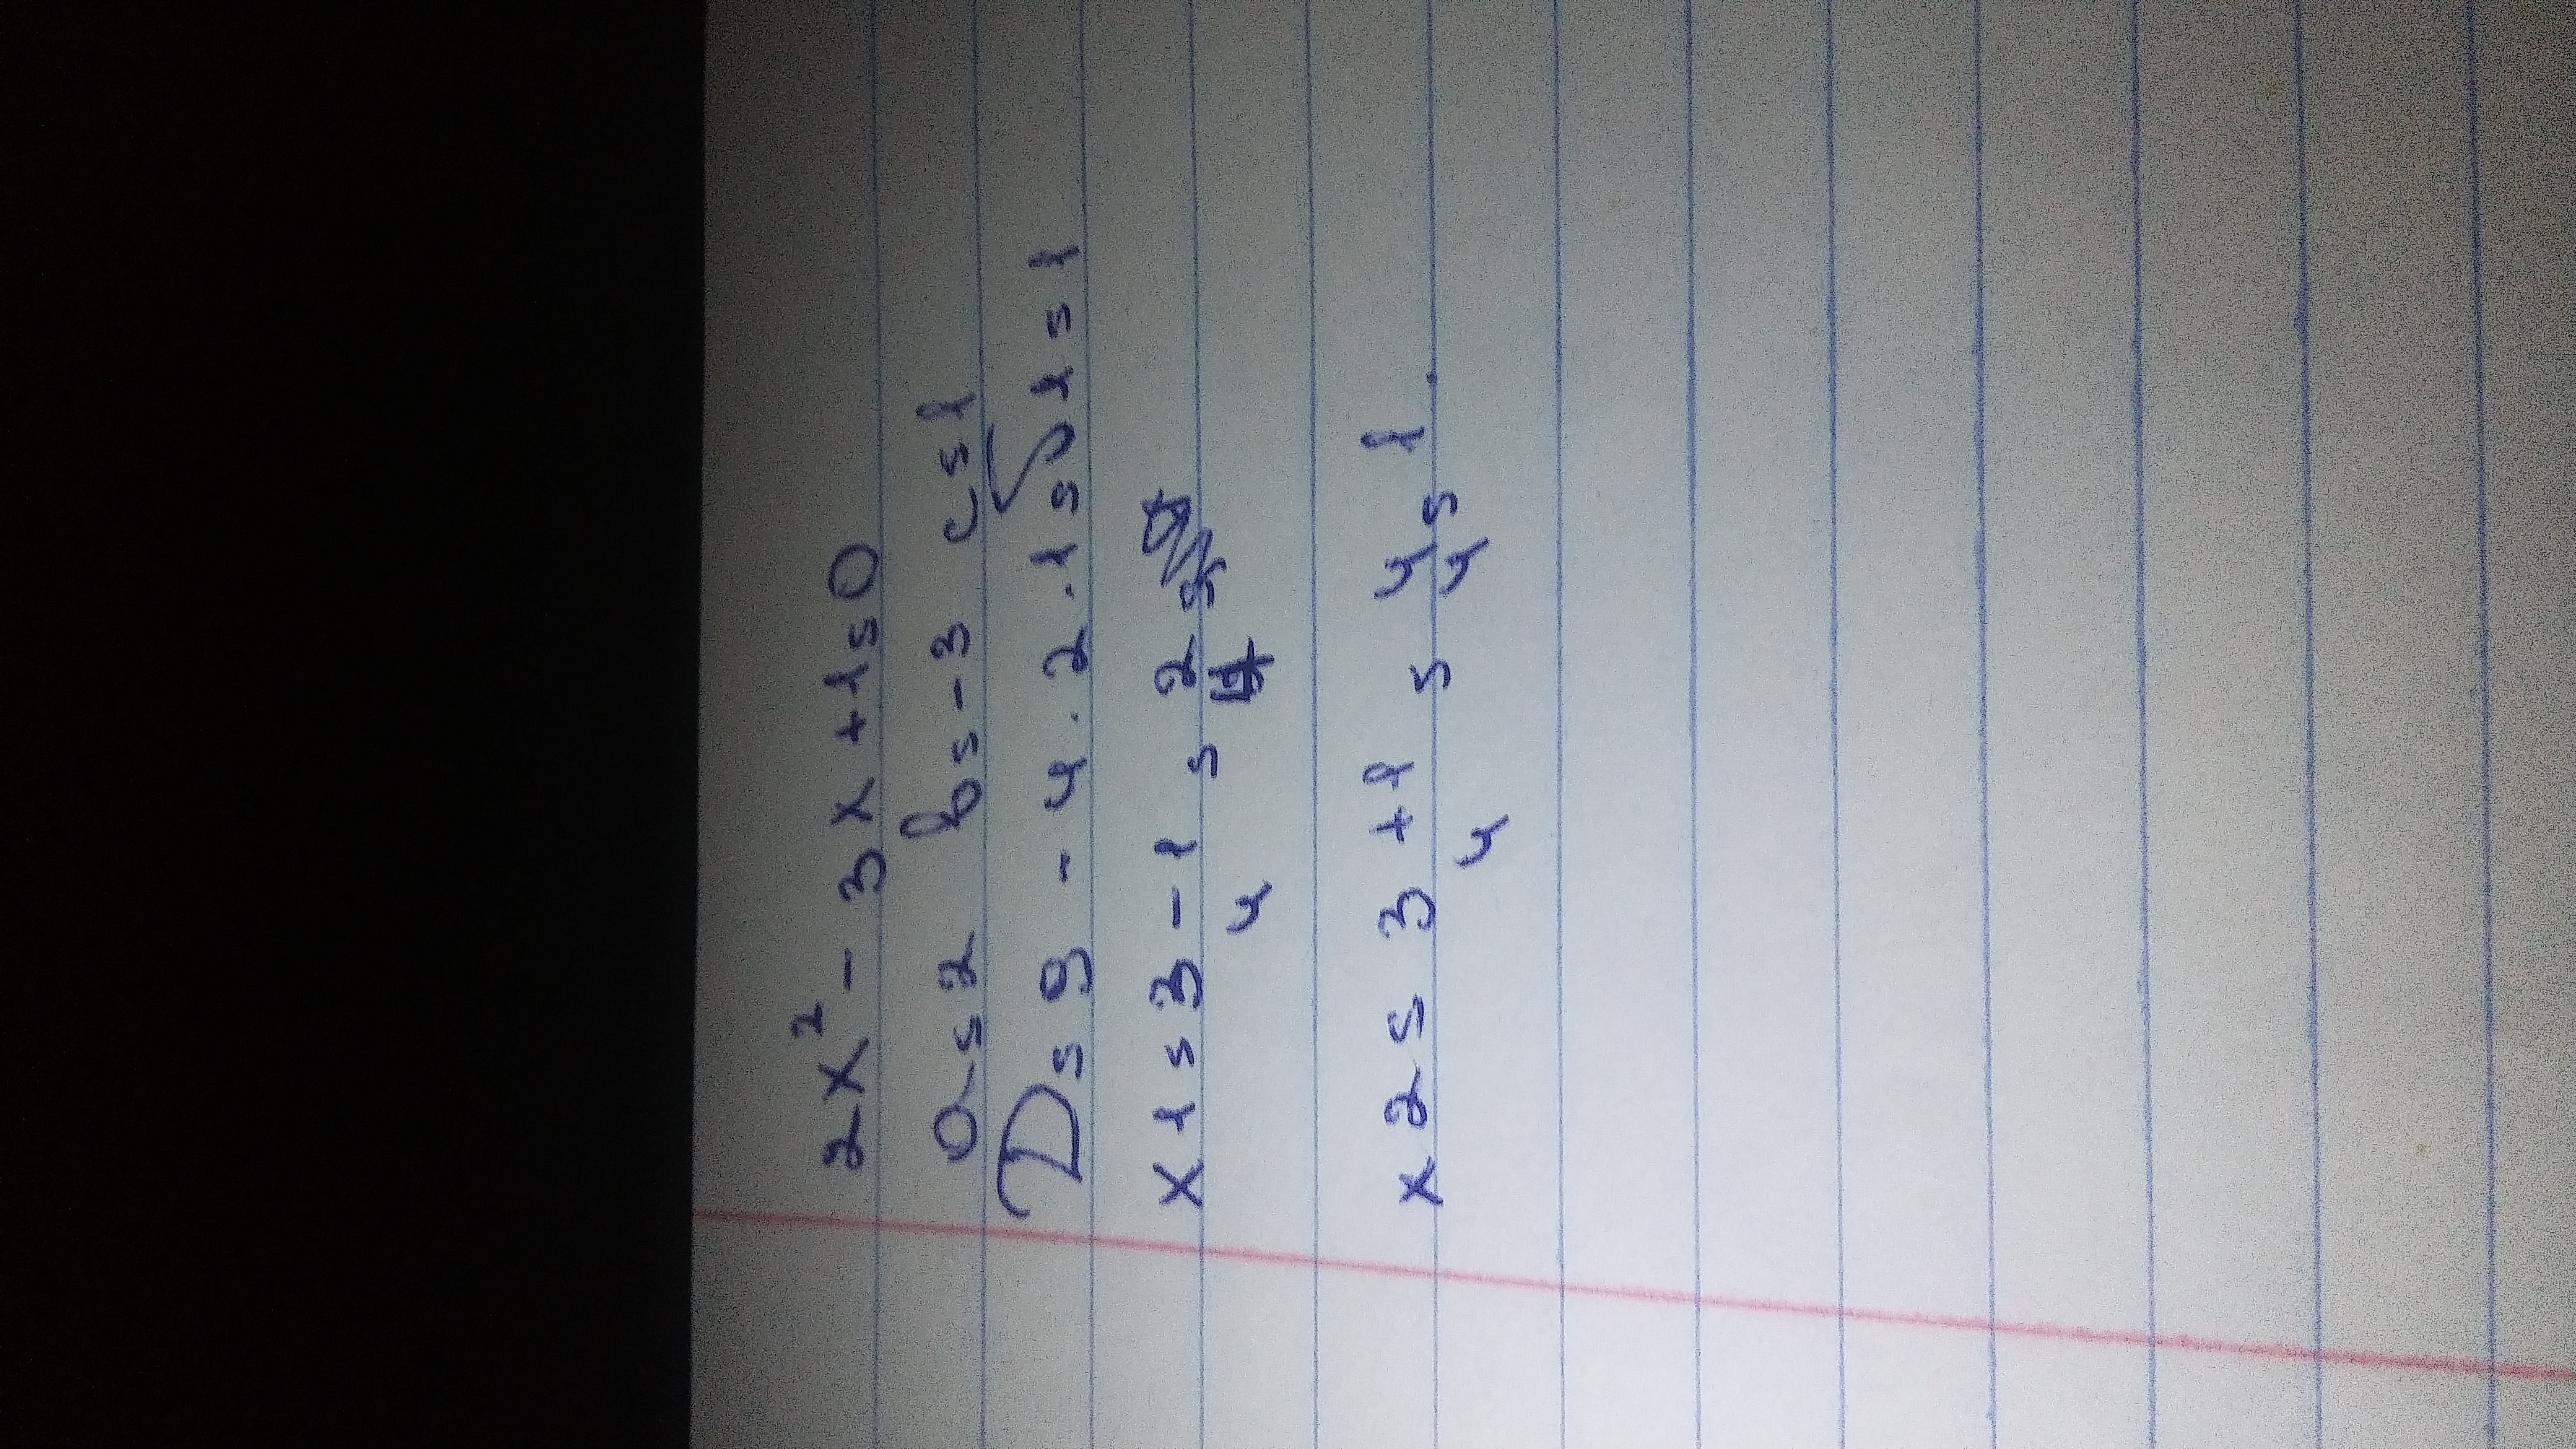 2x² - 3x + 1 = 0
a = 2 b = -3 c = 1
D = 9 - 4 . 2 . 1 = √1 = 1
x1 = 3 - 1 / 4 = 2 / 4
x2 = 3 + 1 / 4 = 4 / 4 = 1 .